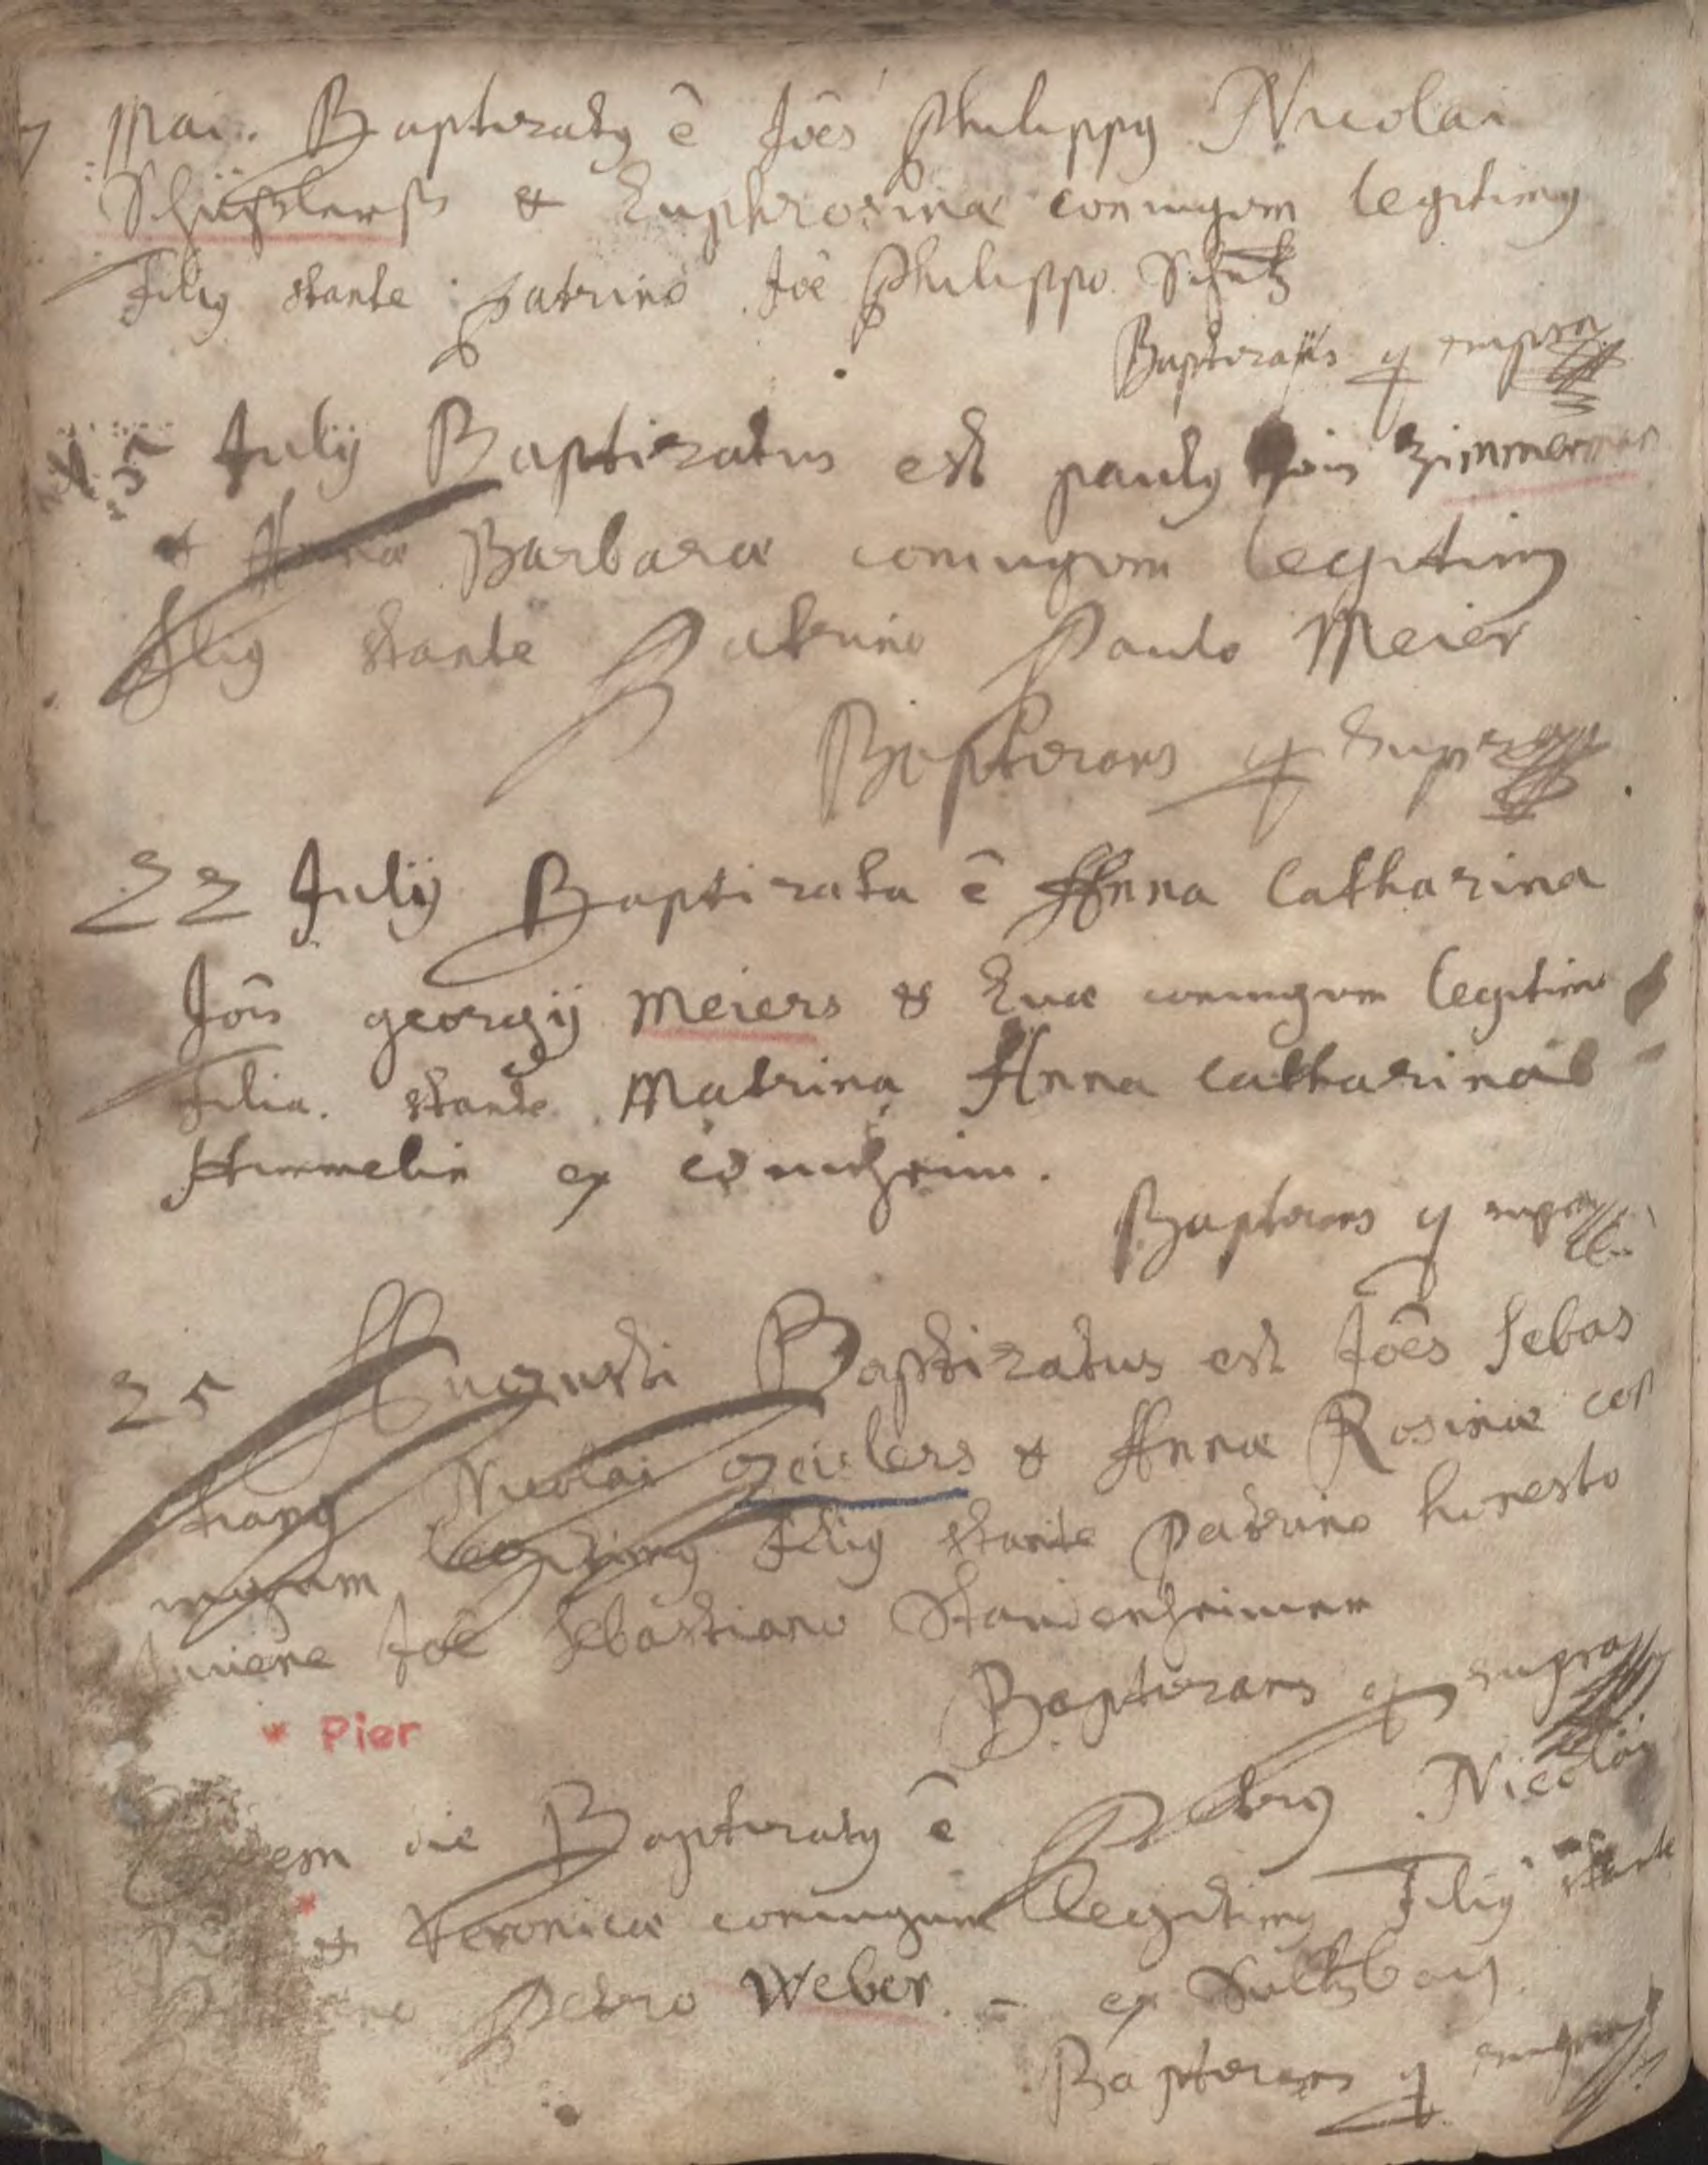 7 Mai. Baptizatus ē Joēs Philippus Nicolai
Schüsslers & Euphrosinæ coniugum legitimus
Filius stante patrino Joē Philippo Schütz
Baptizans q supra
5 Julij Baptizatus est paulus Jois Zimmerman
& Annæ Barbaræ coniugum legitimus
filius stante Patrino Paulo Meier
Baptizans q supra
22 Julij Baptizata ē Anna Catharina
Jois georgij Meiers & Evæ coniugum legitima
Filia. stante Matrina Anna Catharina
Himmelin ex
Baptizans q supra
25 Augusti Baptizatus est Joēs Sebas
tianus Nicolai geilers & Annæ Rosinæ con
iugum legitimus filius stante Patrino honesto
Juvene Joē Sebastiano Staudenheimer
Baptizans q supra
* Pier
Eodem die Baptizatus ē Petrus Nicolai
* & Veronicæ coniugum legitimus Filius stante
Petro Weber. - ex Sultzbach
Baptizans q supra